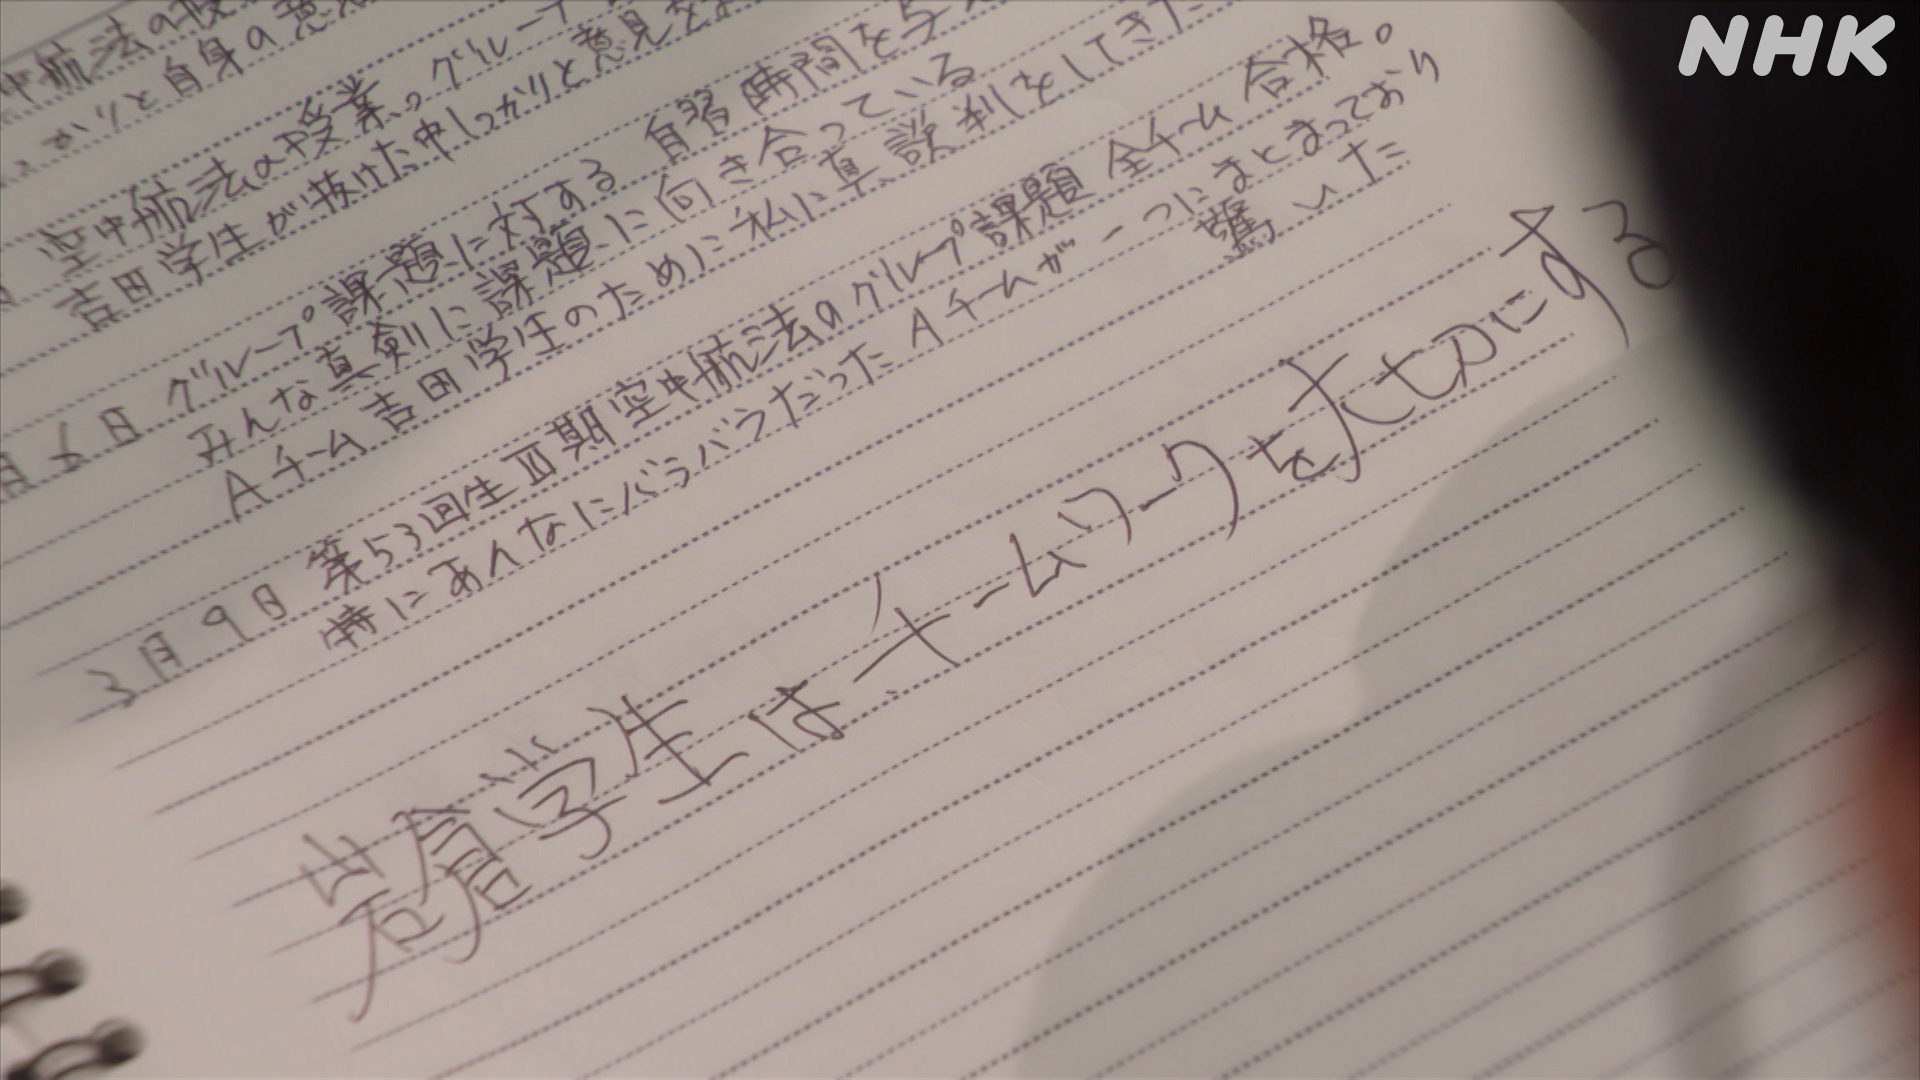 NHK
空中航法の授
かりと自身の意見
空中航法の授業。グループ
吉田学生が抜けた中しっかりと意見をま
月6日 グループ課題に対する 自習時間を与え
みんな真剣に課題に向き合っている
Aチーム 吉田学生のために私に直談判をしてきた
3月9日 第53回生Ⅲ期空中航法のグループ課題 全チーム合格。
特にあんなにバラバラだった Aチームが一つにまとまっており
驚いた
岩倉学生はチームワークを大切にする